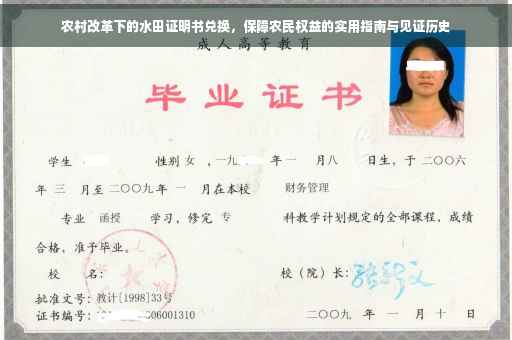 农村改革下的水田证明书兑换，保障农民权益的实用指南与见证历史
成人高等教育
毕业证书
学生 性别 女 ，一九 年 一 月八 日生，于 二〇〇六
年 三 月至 二〇〇九 年 一 月在本校 财务管理
专业 函授 学习，修完 专 科教学计划规定的全部课程，成绩
合格，准予毕业。
校 名： 校（院）长：
批准文号：教计[1998]33号
证书编号： 06001310 二〇〇九 年 一 月 十 日